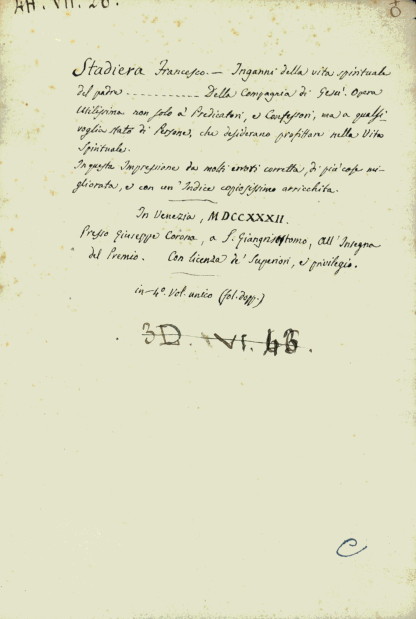 4A. VII. 26.
Stadiera Francesco. — Inganni della vita spirituale
del padre ............ Della Compagnia di Gesù. Opera
Utilissima non solo a' Predicatori, e Confessori, ma a qualsi-
voglia stato di Persone, che desiderano profittare nella Vita
Spirituale.
In questa Impressione da molti errori corretta, di più cose mi-
gliorata, e con un' Indice copiosissimo arricchita.
In Venezia, MDCCXXXII.
Presso Giuseppe Corona, a S. Giangrisostomo, all' Insegna
del Premio. Con licenza de' Superiori, e privilegio.
in-4°. Vol. unico (fol. dopp.)
3D. VI.
C